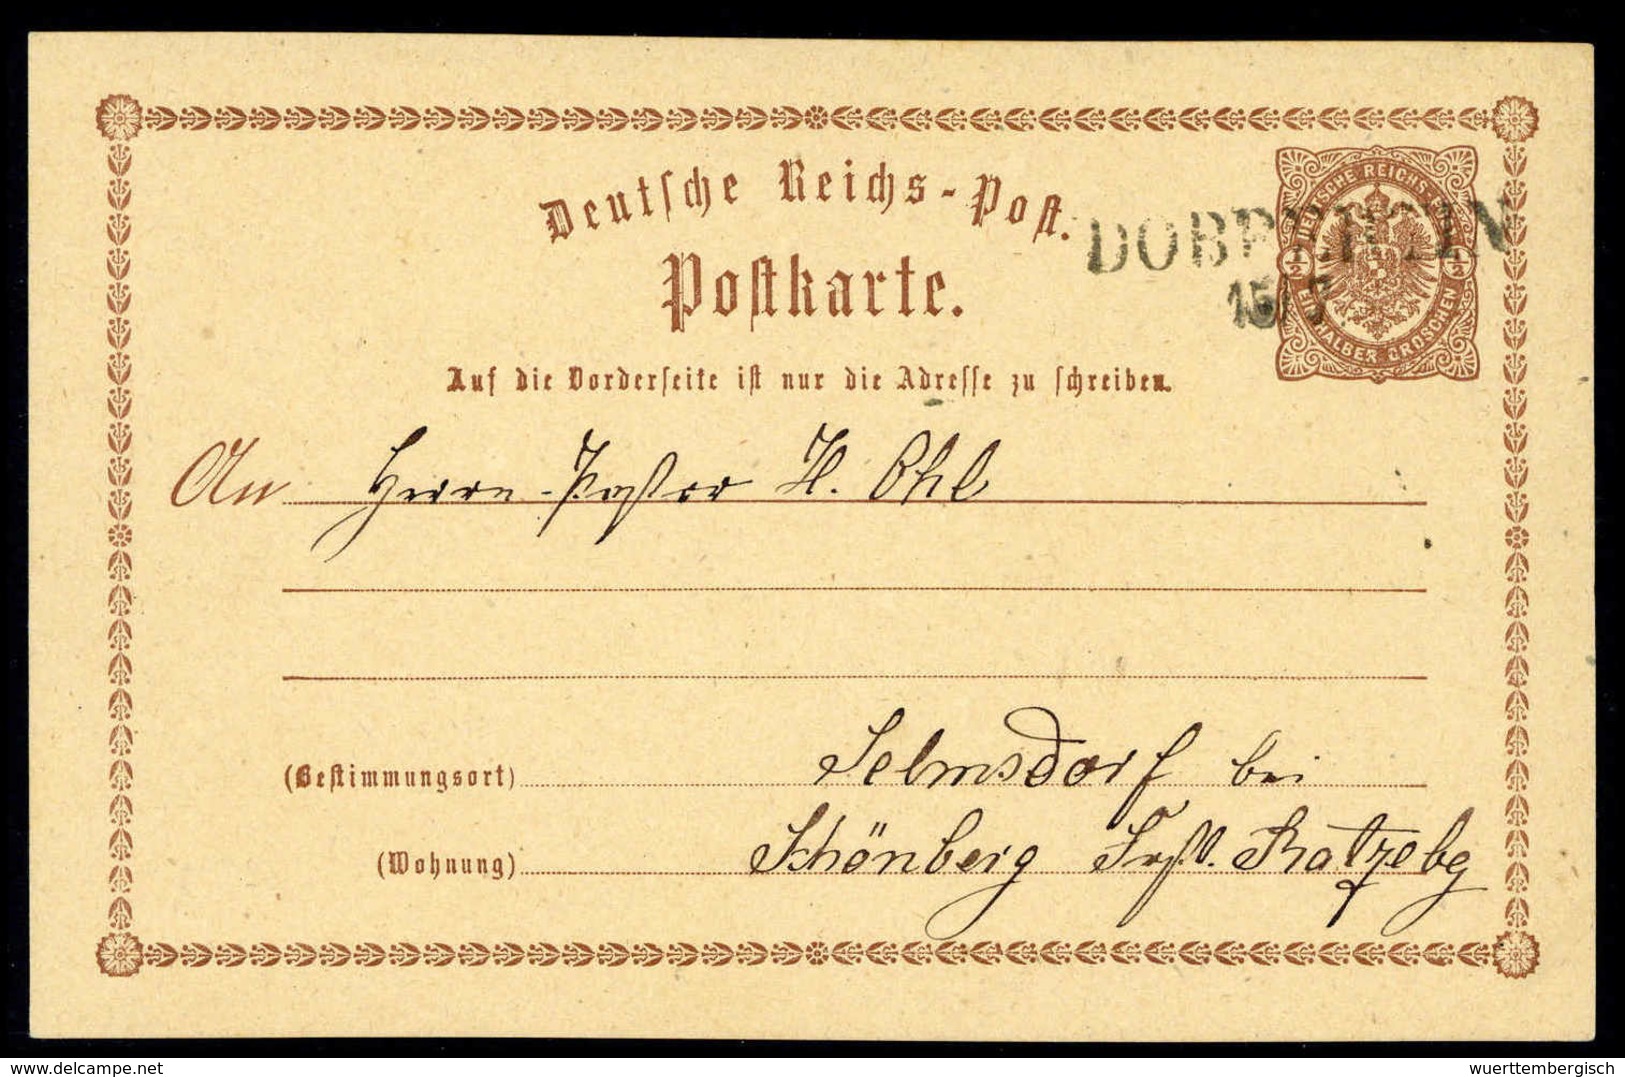 Deutsche Reichs-Post.
Postkarte.
DOBBERTIN
15/7
DEUTSCHE REICHS-POST
½ ½
EIN HALBER GROSCHEN
Auf die Vorderseite ist nur die Adresse zu schreiben.
An Herrn Pastor H. Ohl
(Bestimmungsort) Selmsdorf bei
(Wohnung) Schönberg Ratzebg
wuerttembergisch